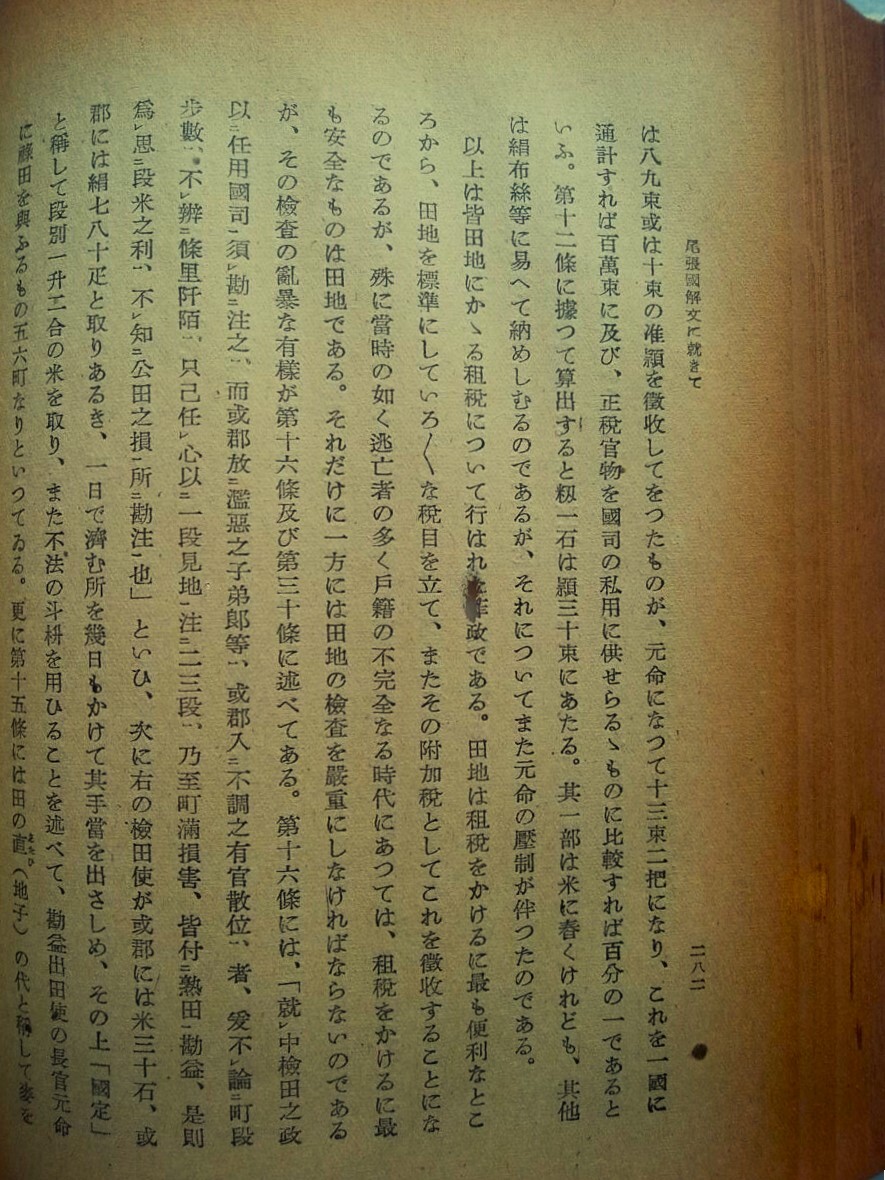 尾張國解文に就きて
二八二
は八九束或は十束の准穎を徴收してをつたものが、元命になつて十三束二把になり、これを一國に
通計すれば百萬束に及び、正税官物を國司の私用に供せらるゝものに比較すれば百分の一であると
いふ。第十二條に據つて算出すると籾一石は穎三十束にあたる。其一部は米に舂くけれども、其他
は絹布絲等に易へて納めしむるのであるが、それについてまた元命の壓制が伴つたのである。
以上は皆田地にかゝる租税について行はれ政である。田地は租税をかけるに最も便利なとこ
ろから、田地を標準にしていろ〱な税目を立て、またその附加税としてこれを徴收することにな
るのであるが、殊に當時の如く逃亡者の多く戶籍の不完全なる時代にあつては、租税をかけるに最
も安全なものは田地である。それだけに一方には田地の檢査を嚴重にしなければならないのである
が、その檢査の亂暴な有樣が第十六條及び第三十條に述べてある。第十六條には、「就㆑中檢田之政
以㆓任用國司㆒須㆑勘㆓注之㆒、而或郡放㆓濫惡之子弟郎等㆒、或郡入㆓不調之有官散位㆒、者、爰不㆑論㆓町段
步數㆒、不㆑辨㆓條里阡陌㆒、只己任㆑心以㆓一段見地㆒注㆓二三段㆒、乃至町滿損害、皆付㆓熟田㆒勘益、是則
爲㆑思㆓段米之利㆒、不㆑知㆓公田之損㆒所㆓勘注㆒也」といひ、次に右の檢田使が或郡には米三十石、或
郡には絹七八十疋と取りあるき、一日で濟む所を幾日もかけて其手當を出さしめ、その上「國定」
と稱して段別一升二合の米を取り、また不法の斗枡を用ひることを述べて、勘益出田使の長官元命
に祿田を與ふるもの五六町なりといつてゐる。更に第十五條には田の直（地子）の代と稱して